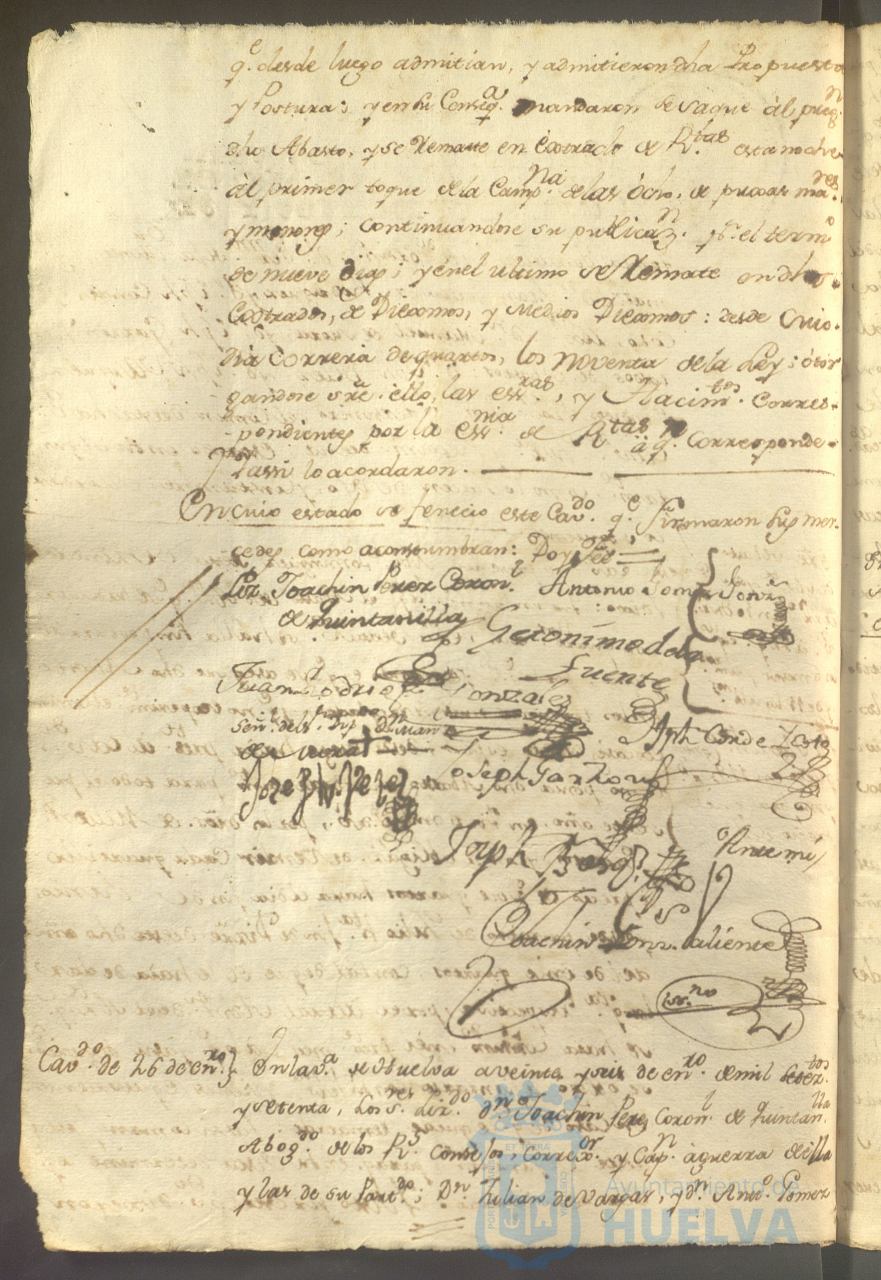 q.e desde luego admitian, y admitieron dha Propuesta
y Postura; y en su Conseq.a mandaron se saque àl preg.n
dho Abasto, y se Remate en Extrado de R.tas esta noche
àl primer toque de la Camp.na de las òcho, de puxas ma.res
y menores; continuandose su publicaz.n p.r el term.o
de nueve dias; y en el ultimo se Remate en dhos
Extrados, de Diezmos, y Medios Diezmos: desde Cuio
dia Correrà de quartos, los noventa de la Ley; òtor
gandose sre. ello, las ess.ras, y Hacim.tos Corres-
pondientes por la ess.nia de R.tas à q.n Corresponde.
Y assi lo acordaron.
En cuio estado se fenecio este Cav.do q.e firmaron sus mer-
cedes como acostumbran: Doy feé =
Liz.do Joachin Perez Coron.l Antonio Gomez
de Quintanilla
Geronimo de la
Fuente
Juan Rodrig.z Gonzalez
Señ.l del s.r Dip.do Juan
de Vega +
Jph Conde
Joseph Garzon
Joze Perez
Joseph
Ante mi
Joachin Gonz. Valiente
ss.no
Cav.do de 26 de en.ro} En la v.a de Huelva a veinte, y seis de en.ro de mil setez.tos
y setenta, Los S.res Liz.do d.n Joachin Perez Coron.l de Quintan.lla
Abog.do de los R.s Consejos; Correx.or y Cap.n àguerra de ella
y las de su Part.do; D.n Julian de Vargas, y d.n Ant.o Gomez
Ayuntamiento de
HUELVA